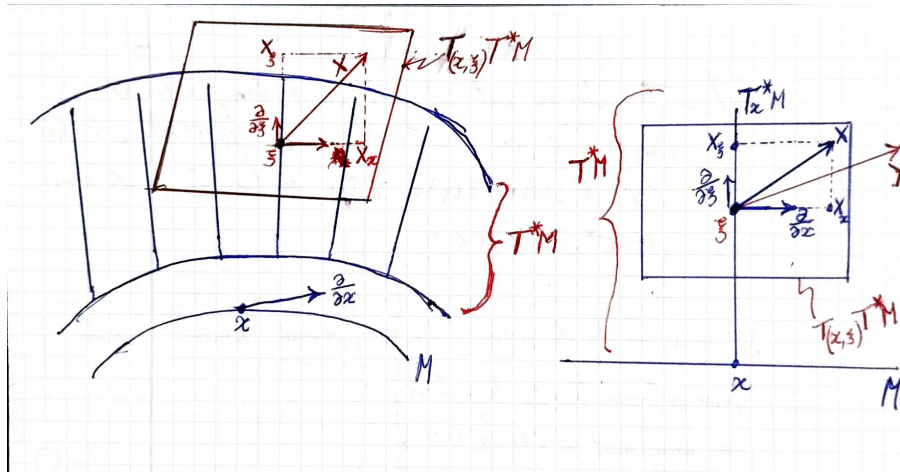 X_ξ
X
T_(x,ξ) T*M
∂/∂ξ
ξ
X_x
T*M
∂/∂x
x
M
T_x*M
T*M
X_ξ
X
∂/∂ξ
ξ
∂/∂x
X_x
T_(x,ξ) T*M
x
M